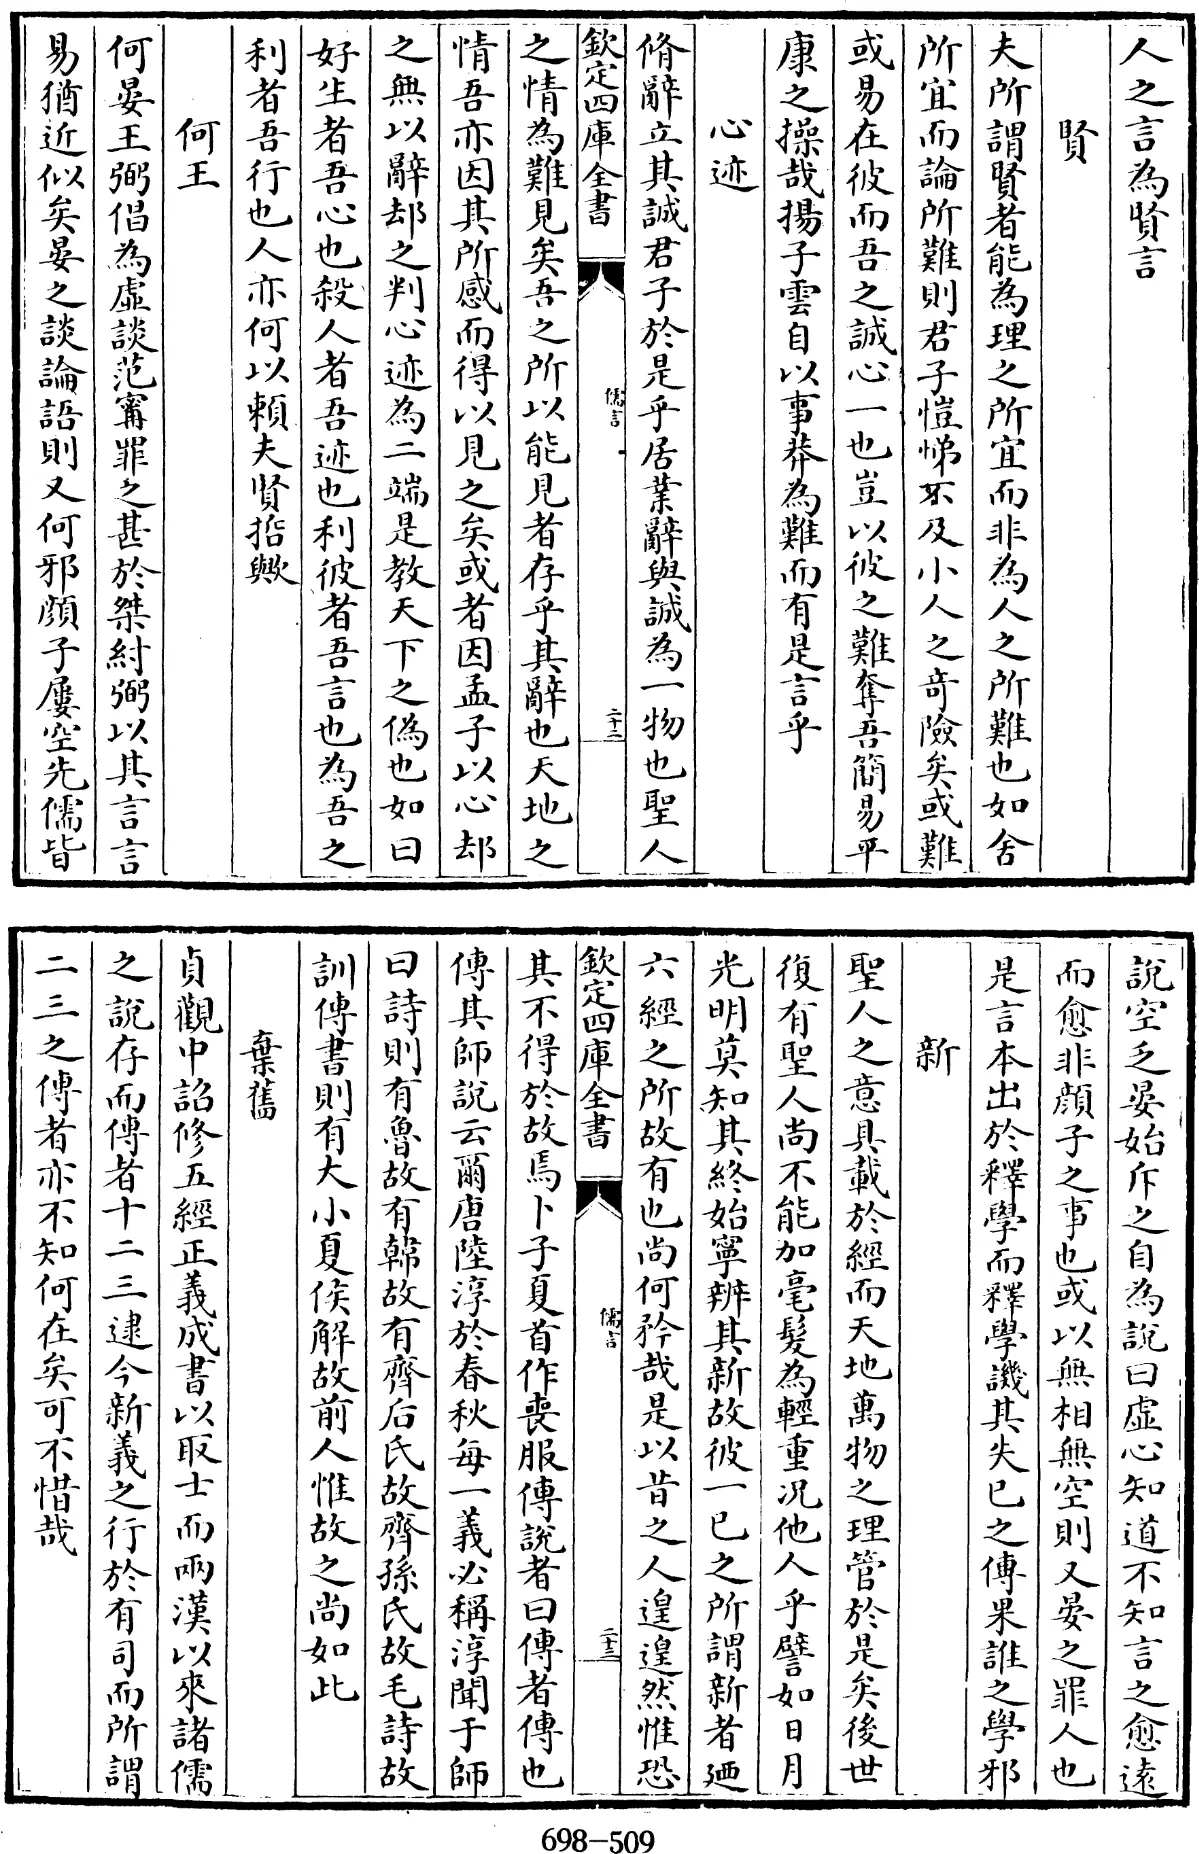 人之言為賢言
賢
夫所謂賢者能為理之所宜而非為人之所難也如舍
所宜而論所難則君子愷悌不及小人之奇險矣或難
或易在彼而吾之誠心一也豈以彼之難奪吾簡易平
康之操哉揚子雲自以事莽為難而有是言乎
心迹
脩辭立其誠君子於是乎居業辭與誠為一物也聖人
欽定四庫全書
儒言
二十二
之情為難見矣吾之所以能見者存乎其辭也天地之
情吾亦因其所感而得以見之矣或者因孟子以心却
之無以辭却之判心迹為二端是教天下之偽也如曰
好生者吾心也殺人者吾迹也利彼者吾言也為吾之
利者吾行也人亦何以賴夫賢哲歟
何王
何晏王弼倡為虛談范甯罪之甚於桀紂弼以其言言
易猶近似矣晏之談論語則又何邪顔子屢空先儒皆
說空乏晏始斥之自為說曰虛心知道不知言之愈遠
而愈非顔子之事也或以無相無空則又晏之罪人也
是言本出於釋學而釋學譏其失已之傳果誰之學邪
新
聖人之意具載於經而天地萬物之理管於是矣後世
復有聖人尚不能加毫髮為輕重況他人乎譬如日月
光明莫知其終始寧辨其新故彼一已之所謂新者廼
六經之所故有也尚何矜哉是以昔之人遑遑然惟恐
欽定四庫全書
儒言
二十三
其不得於故焉卜子夏首作喪服傳說者曰傳者傳也
傳其師說云爾唐陸淳於春秋每一義必稱淳聞于師
曰詩則有魯故有韓故有齊后氏故齊孫氏故毛詩故
訓傳書則有大小夏侯解故前人惟故之尚如此
棄舊
貞觀中詔修五經正義成書以取士而兩漢以來諸儒
之說存而傳者十二三逮今新義之行於有司而所謂
二三之傳者亦不知何在矣可不惜哉
698-509